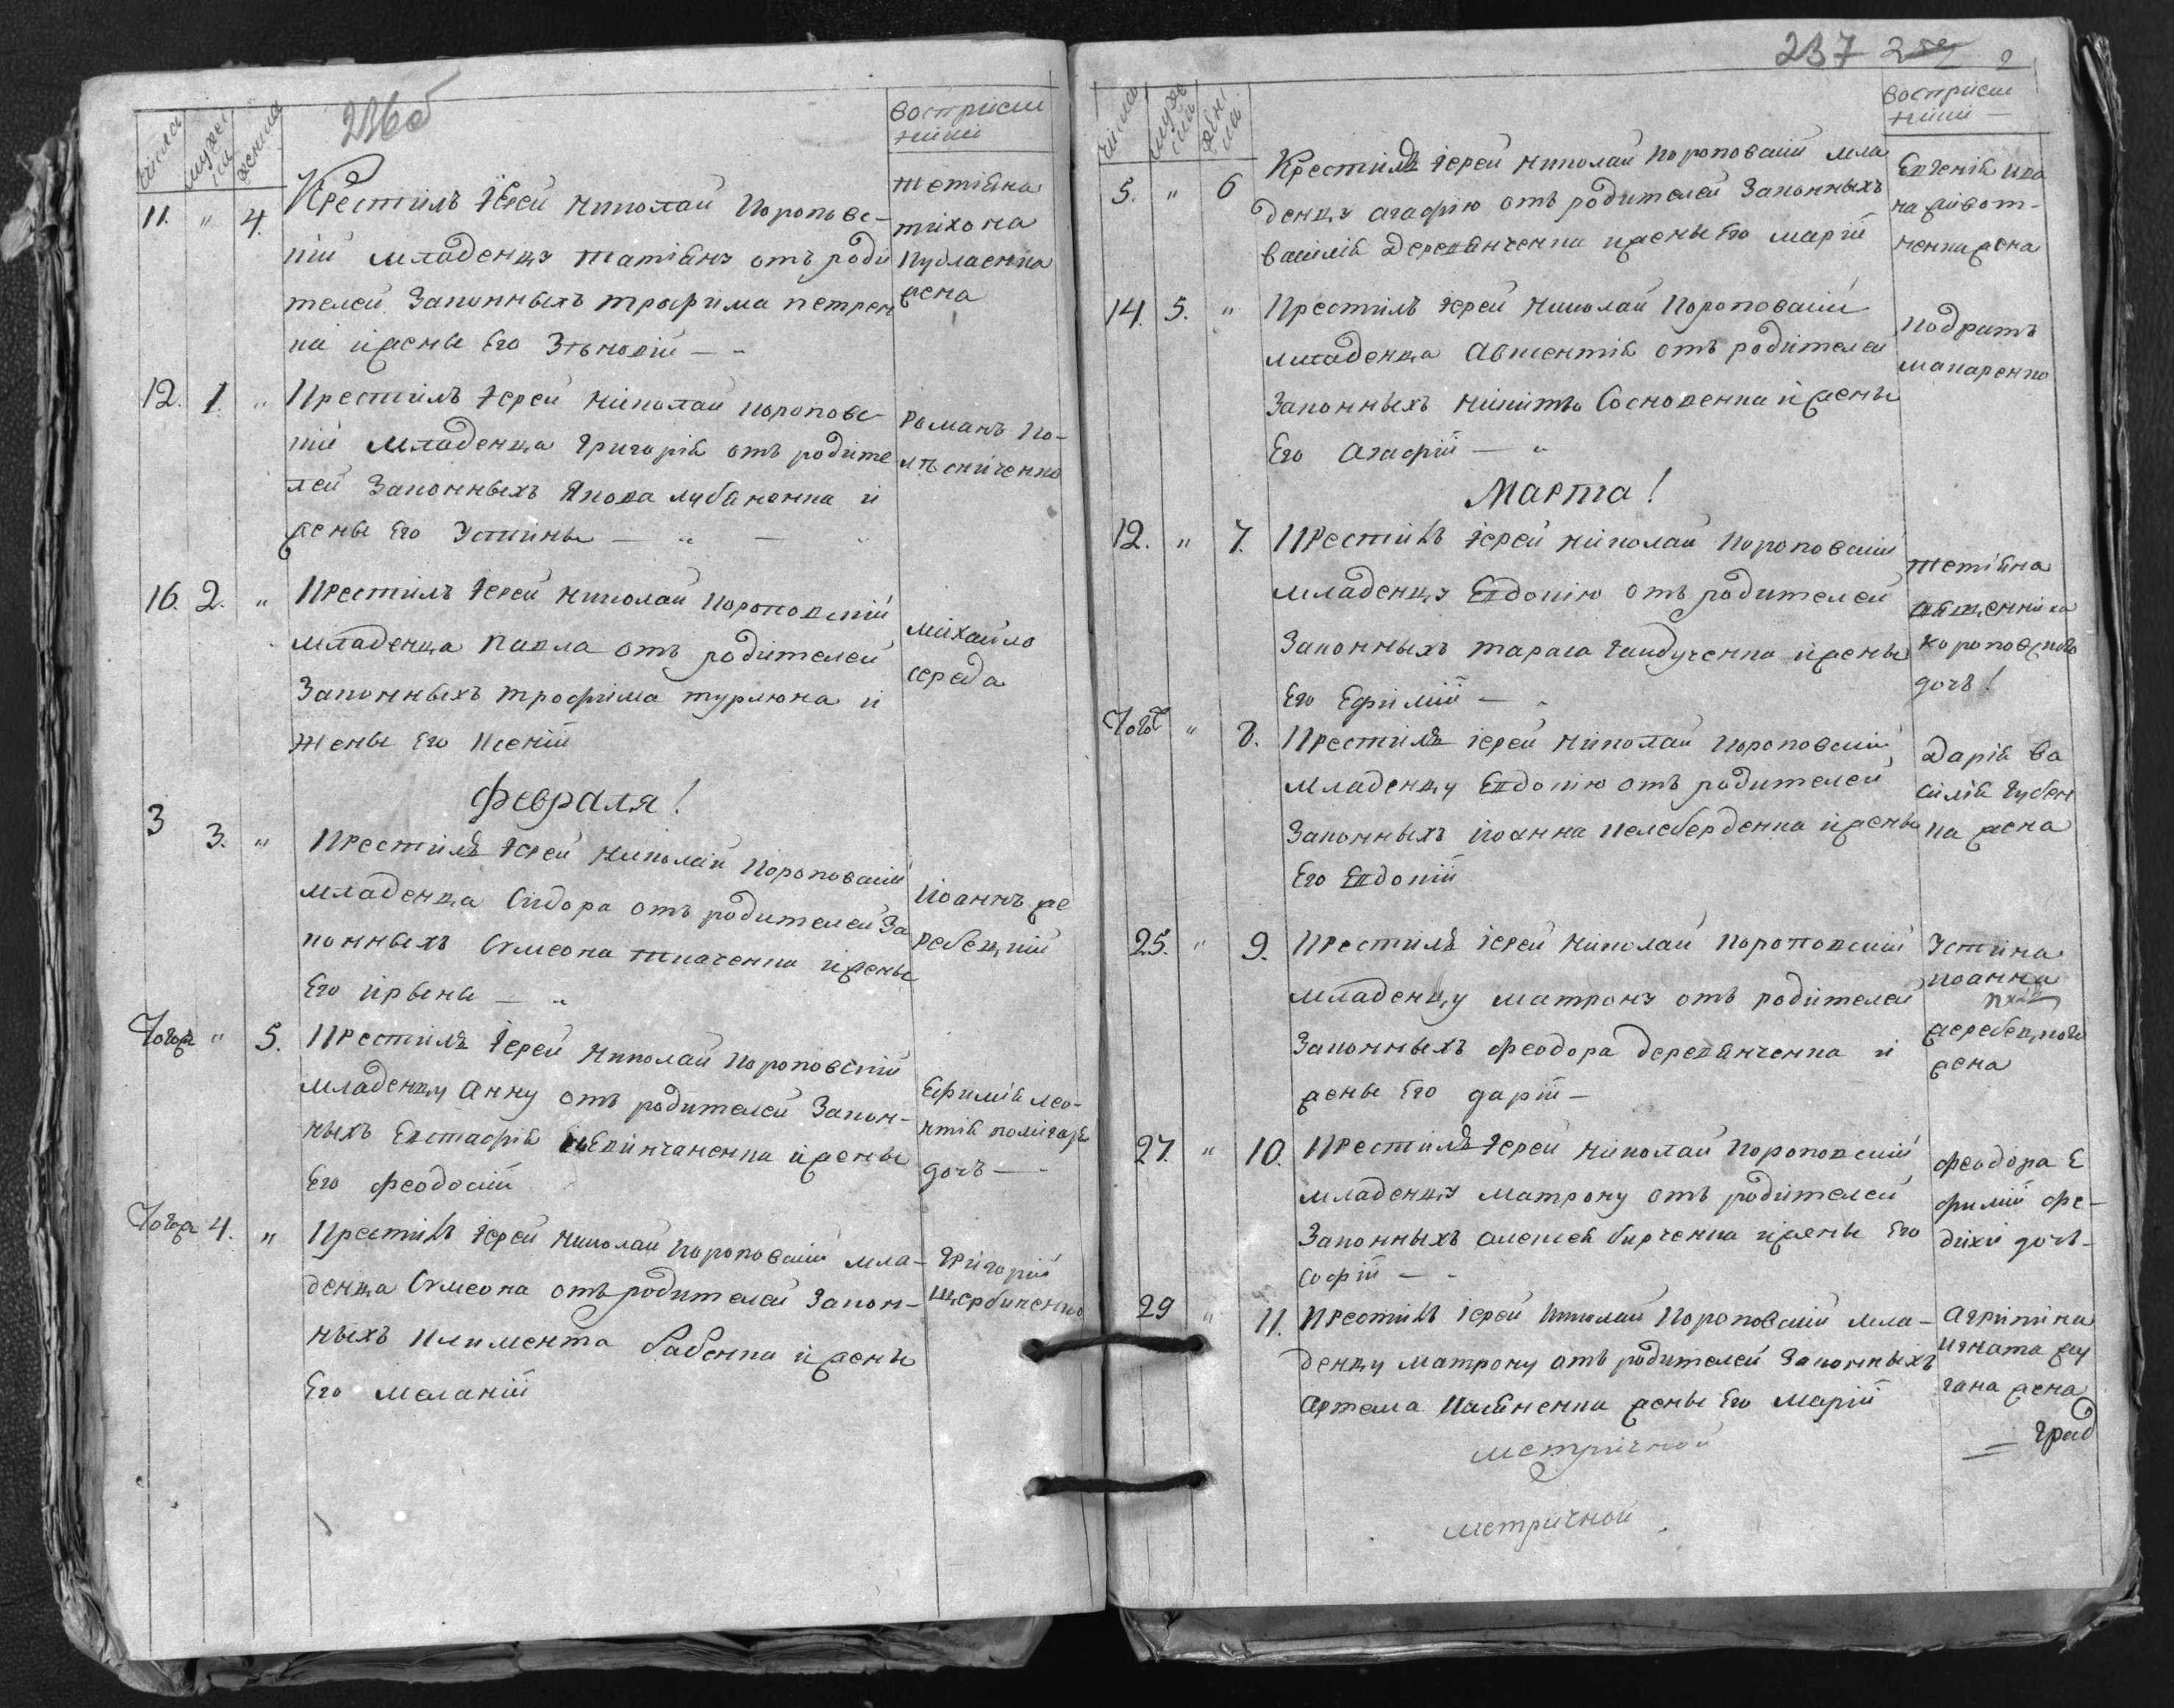 236об
числа мужеска женска
воспріем
ники
11. " 4. Крестилъ Іерей Николай Коропов-
кій младенцу татіану отъ роди
телей Законныхъ трофима петрен
ка и жены Его Зѣновіи —
тетіана
тихона
жена
12. 1. " Крестилъ Іерей Николай коропов-
кій младенца григорія отъ родите
лей Законныхъ Якова лубяненка и
жены Его Устины —
Романъ Ко-
лѣсниченко
16. 2. " Крестилъ Іерей Николай Короповскій
младенца павла отъ родителей
Законныхъ трофима турлюна и
жены Его Ксеніи
михайло
середа
Февраля!
3 3. " Крестилъ Іерей Николай Короповскій
младенца Сидора отъ родителей За
конныхъ Симеона ткаченка и жены
Его Ирыны —
Іоаннъ же
ребецкій
Тогож " 5. Крестилъ Іерей Николай Короповскій
младенцу Анну отъ родителей Закон-
ныхъ Евстафія и жены
Его феодосіи
Ефимія лео-
нтія
дочъ —
Тогож 4. " Крестилъ Іерей Николай Короповскій мла-
денца Симеона отъ родителей Закон-
ныхъ Климента бабенка и жены
Его меланіи
Григорій
щербиненко
237
2
числа мужеска женска
воспріем
ники
5. " 6 Крестилъ Іерей Николай Короповскій мла
денцу агафію отъ родителей Законныхъ
василія Деревянченка и жены Его маріи
Евгенія ива
на живот-
ченка жена
14. 5. " Крестилъ Іерей Николай Короповскій
младенца Авксентія отъ родителей
Законныхъ никиты Сосновенка и жены
Его Агафіи —
кодратъ
макаренко
Марта!
12. " 7. Крестилъ Іерей Николай Короповскій
младенцу Евдокію отъ родителей
Законныхъ тараса гайдученка и жены
Его Ефиміи —
тетіана
священника
короповского
дочъ!
Тогож " 8. Крестилъ Іерей Николай Короповскій
младенцу Евдокію отъ родителей
Законныхъ Іоанна келеберденка и жены
Его Евдокіи
Дарія ва
силія губен
ка жена
25. " 9. Крестилъ Іерей Николай Короповскій
младенцу матрону отъ родителей
Законныхъ феодора деревянченка и
жены Его даріи —
Устина
Іоанна
жеребецкого
жена
27. " 10. Крестилъ Іерей Николай Короповскій
младенцу матрону отъ родителей
Законныхъ алексея бирченка и жены Его
софіи —
феодора Е
фиміи фе-
дихи дочъ-
29 " 11. Крестилъ Іерей Николай Короповскій мла-
денцу матрону отъ родителей Законныхъ
Артема жены Его Маріи
Агрипина
Игната
жена
— град
метричной
метричной